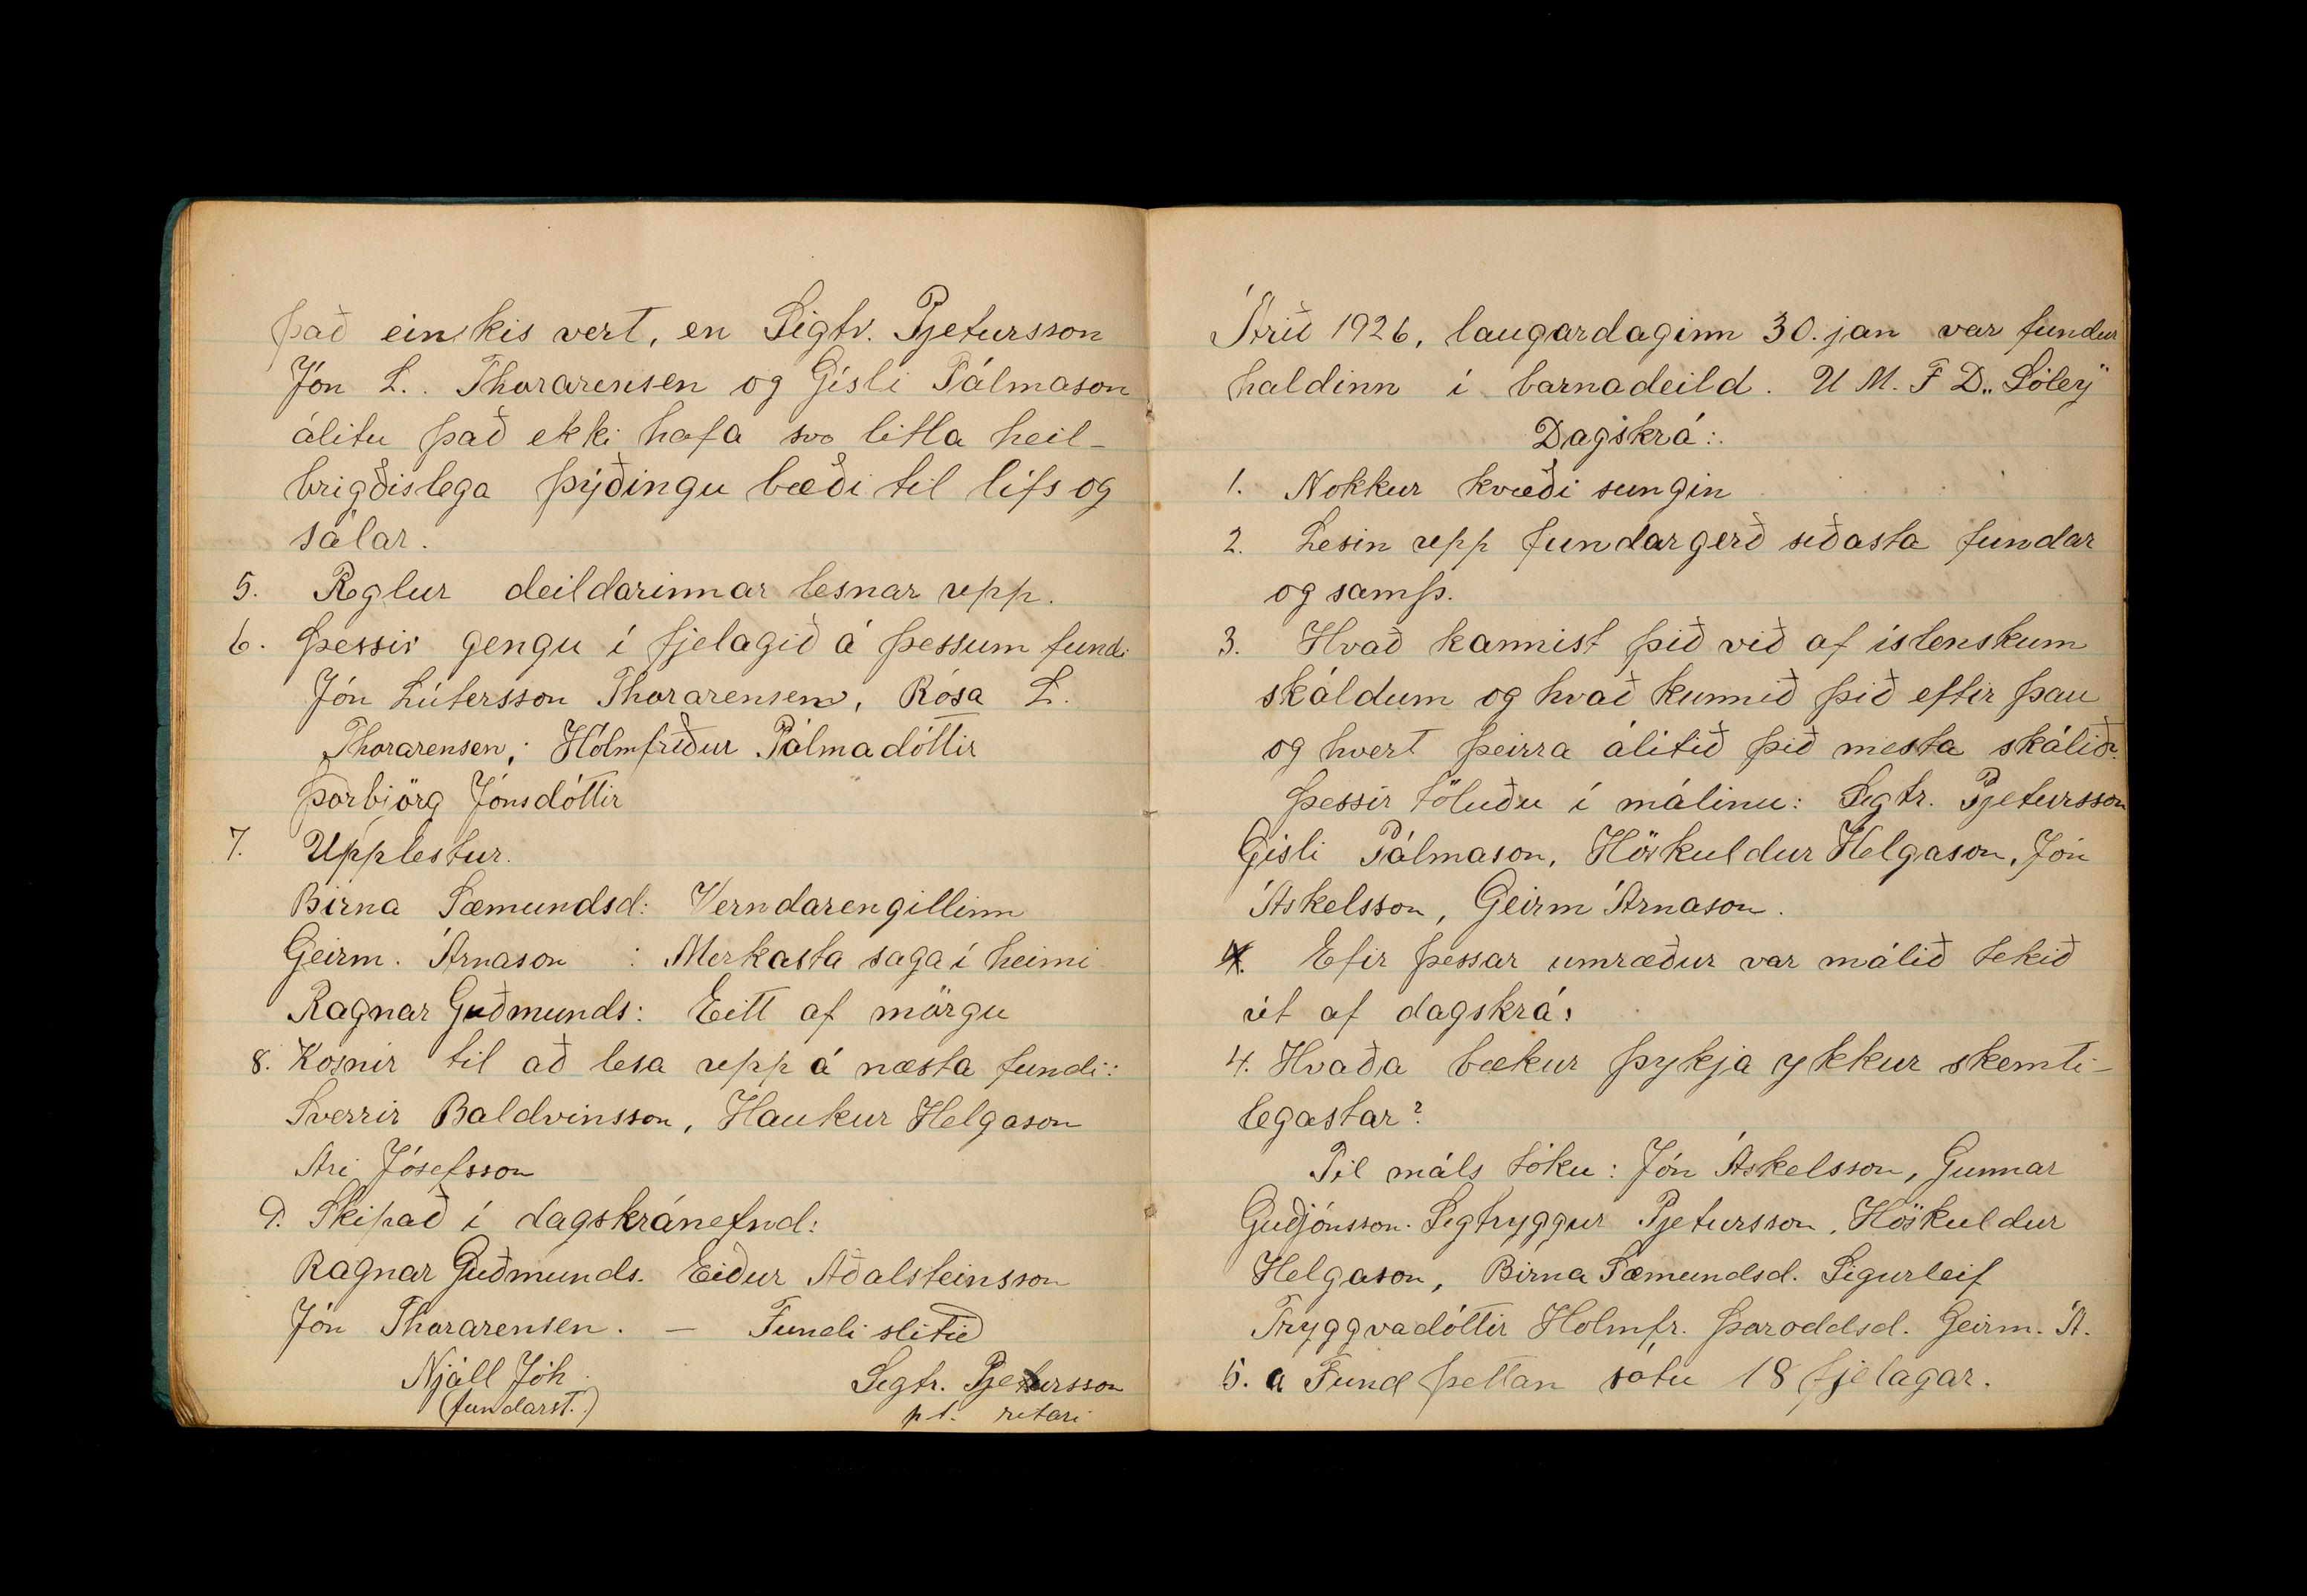 það einskis vert, en Sigtr. Pjetursson
Jón L. Thorarensen og Gísli Pálmason
álitu það ekki hafa svo litla heil-
brigðislega þýðingu bæði til lífs og
sálar.
5. Reglur deildarinnar lesnar upp.
6. Þessir gengu í fjelagið á þessum fundi
Jón Lútersson Thorarensen, Rósa L.
Thorarensen, Hólmfríður Pálmadóttir
Þorbjörg Jónsdóttir
7. Upplestur.
Birna Sæmundsd: Verndarengillinn
Geirm. Árnason : Merkasta saga í heimi
Ragnar Guðmunds: Eitt af mörgu
8. Kosnir til að lesa upp á næsta fundi:
Sverrir Baldvinsson, Haukur Helgason
Ari Jósefsson
9. Skipað í dagskránefnd:
Ragnar Guðmunds. Eiður Aðalsteinsson
Jón Thorarensen. — Fundi slitið
Njáll Jóh. Sigtr. Pjetursson
(fundarst.) p.t. ritari
Árið 1926, laugardaginn 30. jan var fundur
haldinn í barnadeild. U M. F D „Sóley"
Dagskrá:
1. Nokkur kvæði sungin
2. Lesin upp fundargerð síðasta fundar
og samþ.
3. Hvað kannist þið við af íslenskum
skáldum og hvað kunnið þið eftir þau
og hvert þeirra álitið þið mesta skálið?
Þessir töluðu í málinu: Sigtr. Pjetursson
Gísli Pálmason, Höskuldur Helgason, Jón
Áskelsson, Geirm Árnason.
4. Efir þessar umræður var málið tekið
út af dagskrá.
4. Hvaða bækur þykja ykkur skemti-
legastar?
Til máls tóku: Jón Áskelsson, Gunnar
Guðjónsson. Sigtryggur Pjetursson, Höskuldur
Helgason, Birna Sæmundsd. Sigurleif
Tryggvadóttir Holmfr. Þoroddsd. Geirm. Á.
5. a Fund þettan sótu 18 fjelagar.